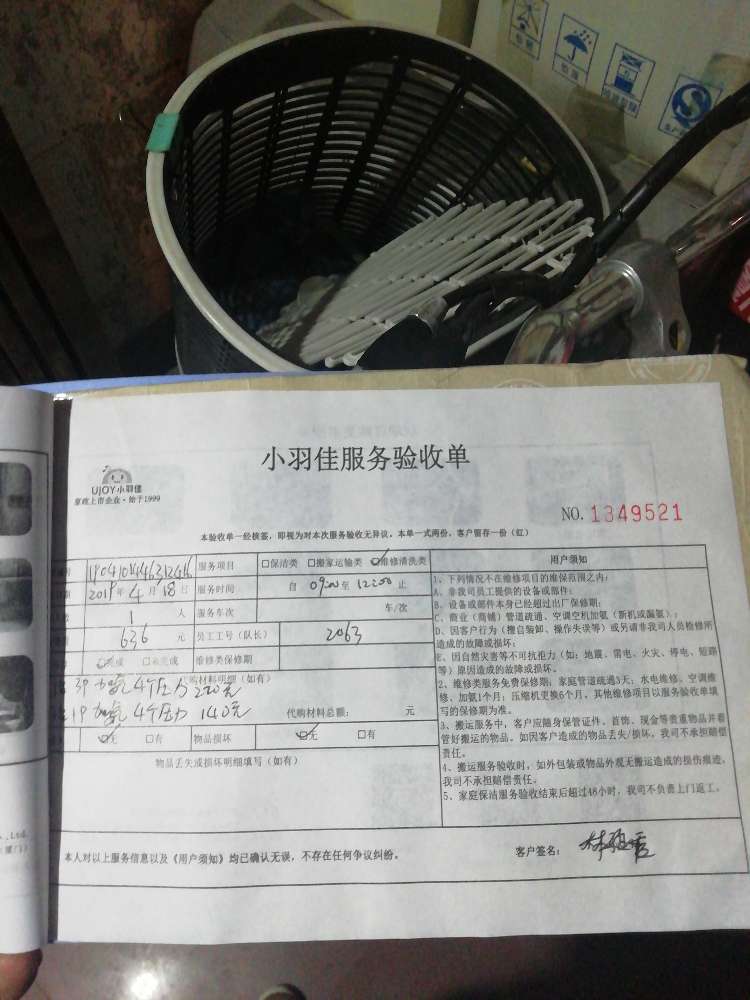 小羽佳服务验收单
UJOY小羽佳
家政上市企业·始于1999
NO. 1349521
本验收单一经核签，即视为对本次服务验收无异议。本单一式两份，客户留存一份（红）
服务项目 □保洁类 □搬家运输类 ☑维修清洗类
2019年4月18日 服务时间 自 09:00 至 12:00 止
1 人 服务车次 车/次
636 元 员工工号（队长） 2063
☑完成 □未完成 维修类保修期
购材料明细（如有）
3P 加氟 4个压力 220元
1P 加氟 4个压力 140元 代购材料总额： 元
☑无 □有 物品损坏 ☑无 □有
物品丢失或损坏明细填写（如有）
用户须知
1、下列情况不在维修项目的维保范围之内：
A、非我司员工提供的设备或部件；
B、设备或部件本身已经超过出厂保修期；
C、商业（商铺）管道疏通、空调空机加氨（新机或漏氨）；
D、因客户行为（擅自装卸、操作失误等）或另请非我司人员检修所
造成的故障或损坏；
E、因自然灾害等不可抗力（如：地震、雷电、火灾、停电、短路
等）原因造成的故障或损坏。
2、维修类服务免费保修期：家庭管道疏通3天，水电维修、空调维
修、加氨1个月；压缩机更换6个月，其他维修项目以服务验收单填
写的保修期为准。
3、搬运服务中，客户应随身保管证件、首饰、现金等贵重物品并看
管好搬运的物品。如因客户造成的物品丢失/损坏，我司不承担赔偿
责任。
4、搬运服务验收时，如外包装或物品外观无搬运造成的损伤痕迹，
我司不承担赔偿责任。
5、家庭保洁服务验收结束后超过48小时，我司不负责上门返工。
本人对以上服务信息以及《用户须知》均已确认无误，不存在任何争议纠纷。
客户签名：
., Ltd.